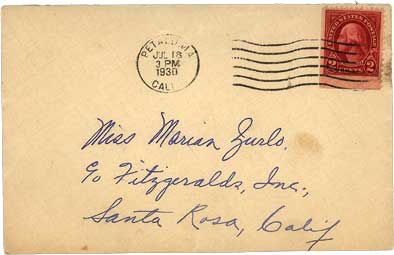 PETALUMA
JUL 18
3 PM
1930
CALIF.
UNITED STATES POSTAGE
2 CENTS 2
Miss Marian Zurlo.
c/o Fitzgeralds, Inc.,
Santa Rosa, Calif